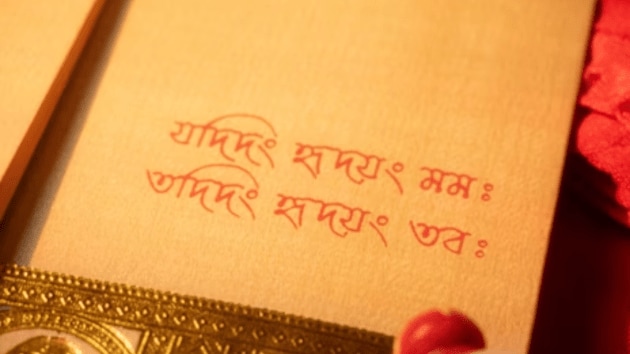 যদিদিং হৃদয়ং মমঃ
তদিদিং হৃদয়ং তবঃ